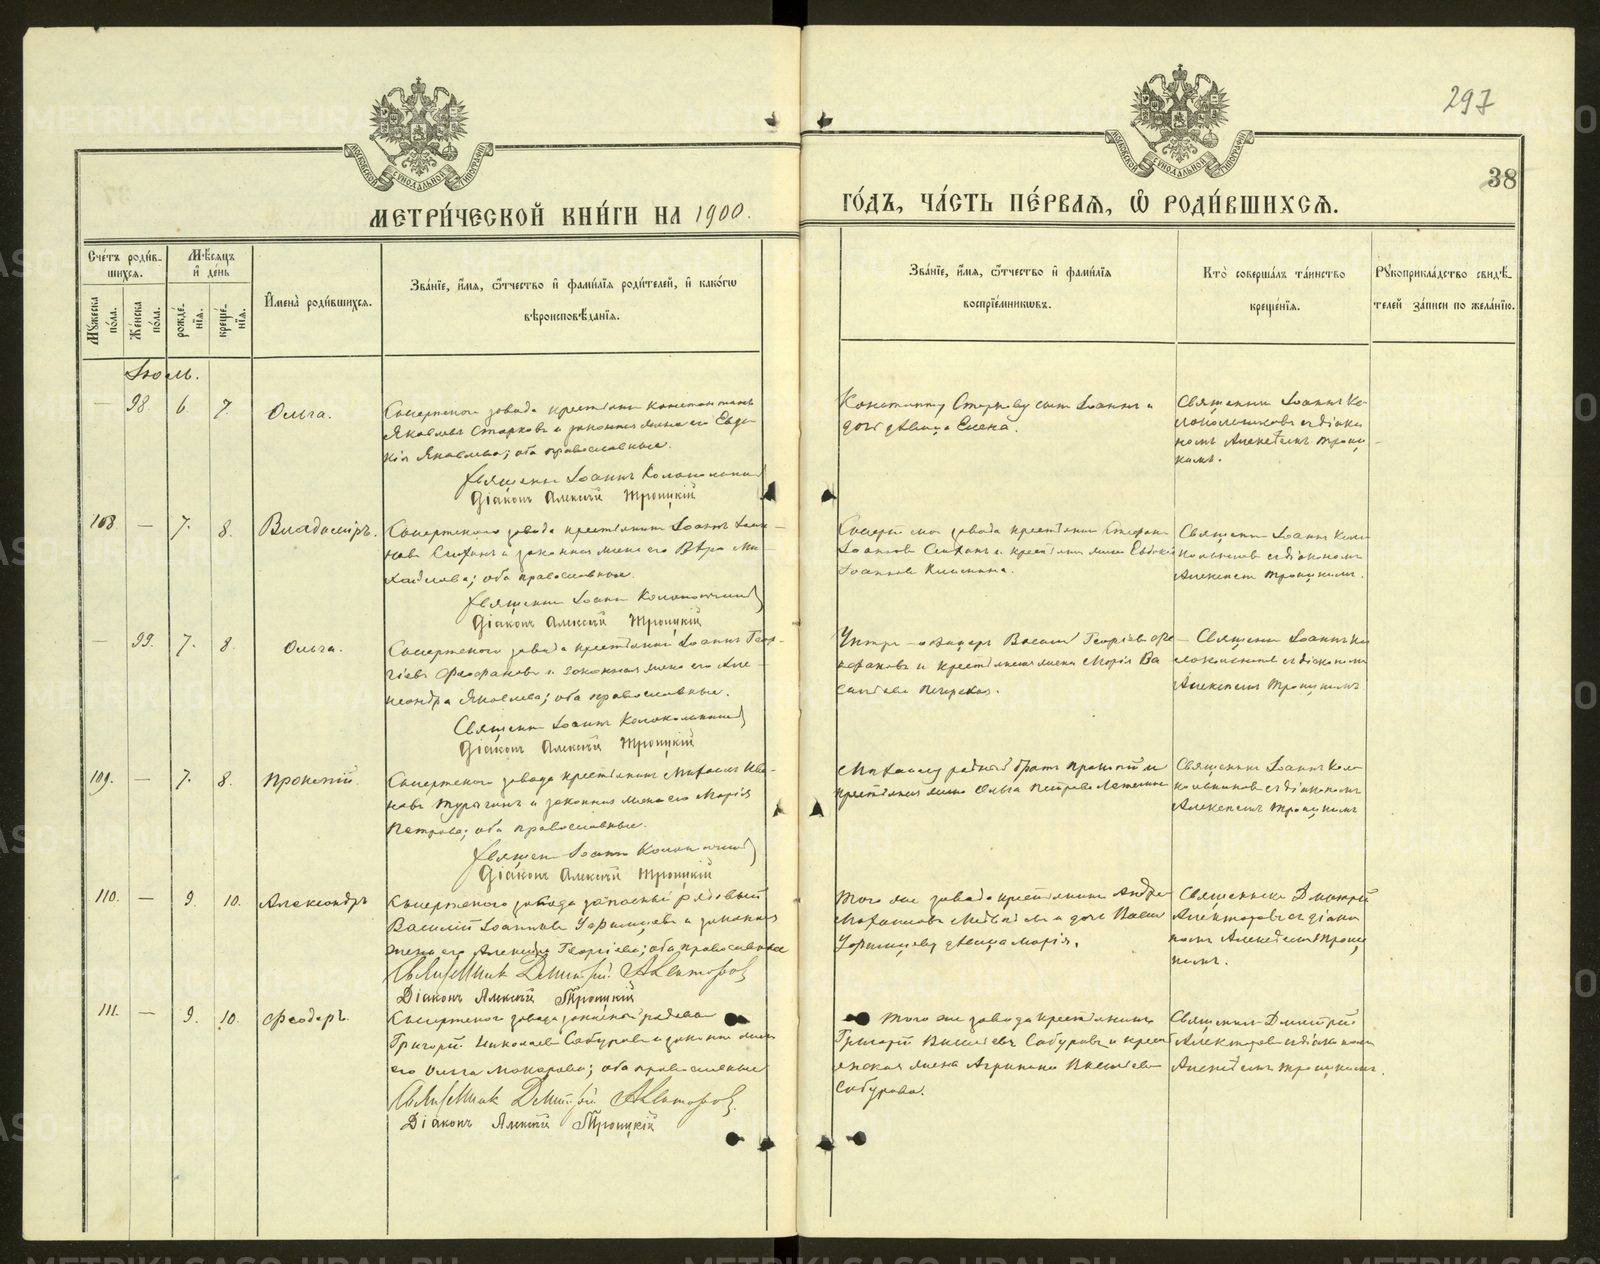 297
38
МОСКОВСКОЙ СѴНОДАЛЬНОЙ ТИПОГРАФІИ
МОСКОВСКОЙ СѴНОДАЛЬНОЙ ТИПОГРАФІИ
МЕТРИ́ЧЕСКОЙ КНИ́ГИ НА 1900.
ГО́ДЪ, ЧА́СТЬ ПЕ́РВАЯ, Ѡ҆ РОДИ́ВШИХСЯ.
Сче́тъ роди́в-
шихся.
Мꙋжеска по́ла.
Же́нска по́ла.
Мѣ́сяцъ и҆ де́нь
рожде́-
нїя.
креще́-
нїя.
И҆мена̀ роди́вшихся.
Зва́нїе, и҆́мя, ѻ҆́тчество и҆ фами́лїя роди́телей, и҆ како́гѡ
вѣроисповѣ́данїя.
Зва́нїе, и҆́мя, ѻ҆́тчество и҆ фами́лїя
воспрїе́мникѡвъ.
Кто̀ соверша́лъ та́инство
креще́нїя.
Рꙋкоприкла́дство свидѣ́-
телей за́писи по жела́нїю.
Іюль.
— 98 6 7. Ольга.
Сысертскаго завода крестьянинъ Константинъ
Яковлевъ Старковъ и законная жена его Евдо-
кія Яковлева; оба православные.
Священникъ Іоаннъ Колокольниковъ
Діаконъ Алексій Троицкій
Константину Старкову сынъ Іоаннъ и
дочь девица Елена.
Священникъ Іоаннъ Ко-
локольниковъ съ діако-
номъ Алексѣемъ Троиц-
кимъ.
108 — 7. 8. Владиміръ.
Сысертскаго завода крестьянинъ Іоаннъ
и законная жена его Вѣра Ми-
хайлова; оба православные.
Священникъ Іоаннъ Колокольниковъ
Діаконъ Алексій Троицкій
завода крестьянинъ
Іоанновъ и крестьянская жена Евдокія
Іоаннова
Священникъ Іоаннъ Коло-
кольниковъ съ діакономъ
Алексѣемъ Троицкимъ.
— 99. 7. 8. Ольга.
Сысертскаго завода крестьянинъ Іоаннъ Геор-
гіевъ Феофановъ и законная жена его Але-
ксандра Яковлева; оба православные.
Священникъ Іоаннъ Колокольниковъ
Діаконъ Алексій Троицкій
Унтеръ-офицеръ Василій Георгіевъ Фео-
фановъ и крестьянская жена Марія Ва-
сильева
Священникъ Іоаннъ Ко-
локольниковъ съ діакономъ
Алексѣемъ Троицкимъ
109. — 7. 8. Прокопій.
Сысертскаго завода крестьянинъ Михаилъ Ива-
новъ Турыгинъ и законная жена его Марія
Петрова; оба православные.
Священникъ Іоаннъ Колокольниковъ
Діаконъ Алексій Троицкій
Михаилу родной братъ Прокопій и
крестьянская жена Ольга Петрова
Священникъ Іоаннъ Коло-
кольниковъ съ діакономъ
Алексѣемъ Троицкимъ
110. — 9. 10. Александръ
Сысертскаго завода запасный рядовый
Василій Іоанновъ и законная
жена его Александра Георгіева; оба православные
Священникъ Димитрій Алекторовъ
Діаконъ Алексій Троицкій
Того же завода крестьянинъ Андрей
и дочь Васил.
девица Марія.
Священникъ Димитрій
Алекторовъ съ діако-
номъ Алексѣемъ Троиц-
кимъ.
111. — 9. 10. Феодоръ.
Сысертскаго завода запасный рядовой
Григорій Николаевъ Сабуровъ и законная жена
его Ольга Макарова; оба православные
Священникъ Димитрій Алекторовъ.
Діаконъ Алексій Троицкій
Того же завода крестьянинъ
Григорій Васильевъ Сабуровъ и крест-
янская жена Агрипина Васильева
Сабурова.
Священникъ Димитрій
Алекторовъ съ діакономъ
Алексѣемъ Троицкимъ.
METRIKI.GASO-URAL.RU